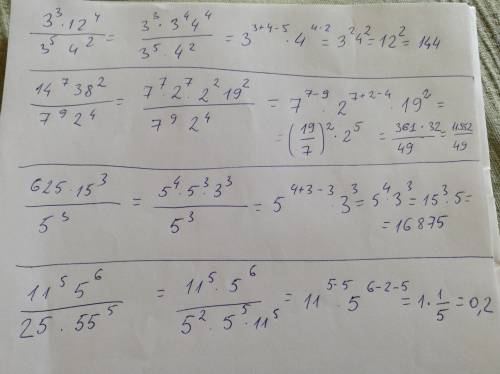 3³·12⁴/3⁵·4² = 3³·3⁴4⁴/3⁵·4² = 3³⁺⁴⁻⁵·4⁴⁻² = 3²4² = 12² = 144
14⁷38²/7⁹2⁴ = 7⁷2⁷·2²19²/7⁹2⁴ = 7⁷⁻⁹·2⁷⁺²⁻⁴·19² =
= (19/7)²·2⁵ = 361·32/49 =
625·15³/5³ = 5⁴·5³·3³/5³ = 5⁴⁺³⁻³·3³ = 5⁴·3³ = 15³·5 =
= 16875
11⁵5⁶/25·55⁵ = 11⁵·5⁶/5²·5⁵·11⁵ = 11⁵⁻⁵·5⁶⁻²⁻⁵ = 1·1/5 = 0,2